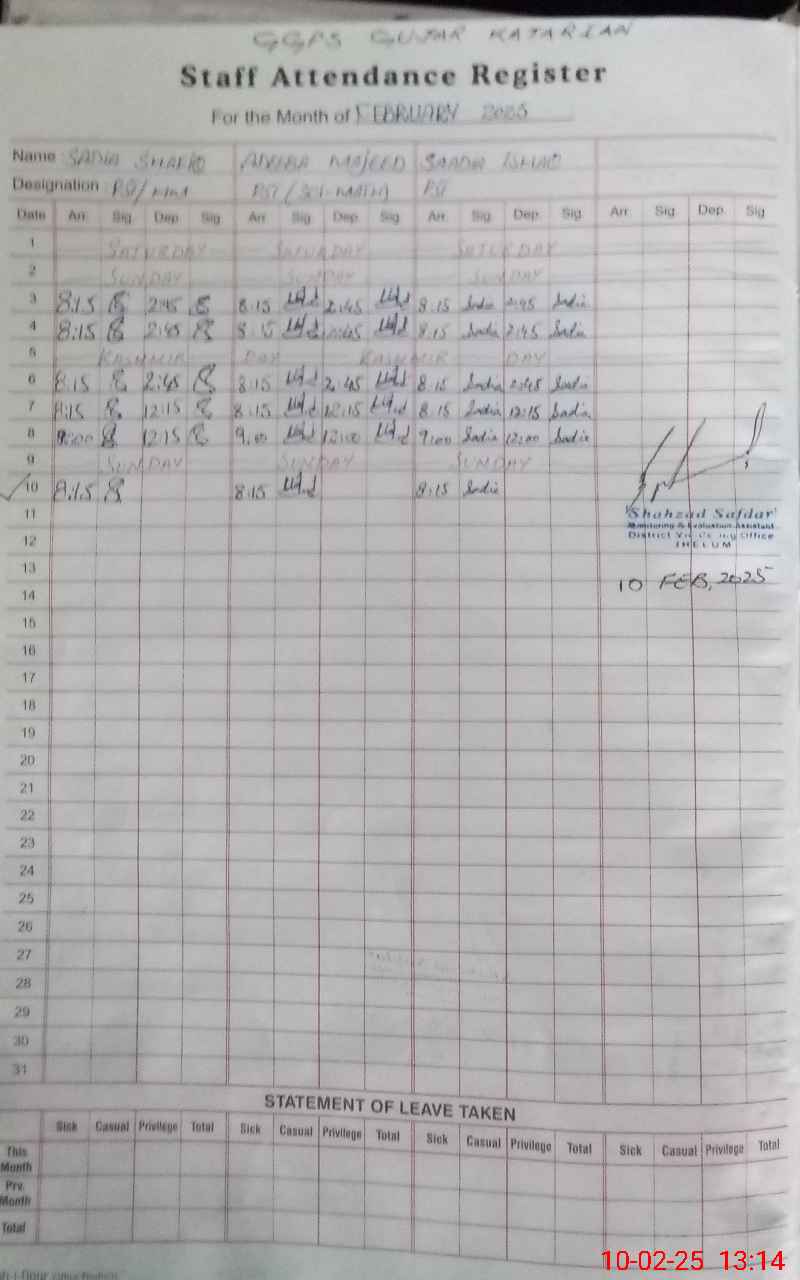 GGPS GUJAR KATARIAN
Staff Attendance Register
For the Month of FEBRUARY 2025
Name SADIA SHAFIQ ADEEBA MAJEED SAADIA ISHAQ
Designation PST/ PST/(SCI-MATH) PST
Date Arr. Sig. Dep. Sig. Arr. Sig. Dep. Sig Arr. Sig. Dep. Sig. Arr. Sig Dep. Sig
1 SATURDAY SATURDAY SATURDAY
2 SUNDAY SUNDAY SUNDAY
3 8:15 2:45 8:15 2:45 8:15 Sadia 2:45 Sadia
4 8:15 2:45 8:15 2:45 8:15 Sadia 2:45 Sadia
5 KASHMIR DAY KASHMIR DAY
6 8:15 2:45 8:15 2:45 8:15 Sadia 2:45 Sadia
7 8:15 12:15 8:15 12:15 8:15 Sadia 12:15 Sadia
8 9:00 12:15 9:00 12:00 9:00 Sadia 12:00 Sadia
9 SUNDAY SUNDAY SUNDAY
10 8:15 8:15 8:15 Sadia
11
12
13
14
15
16
17
18
19
20
21
22
23
24
25
26
27
28
29
30
31
Shahzad Safdar
Monitoring & Evaluation Assistant
District Office
JHELUM
10 FEB, 2025
STATEMENT OF LEAVE TAKEN
Sick Casual Privilege Total Sick Casual Privilege Total Sick Casual Privilege Total Sick Casual Privilege Total
This Month
Prv. Month
Total
10-02-25 13:14